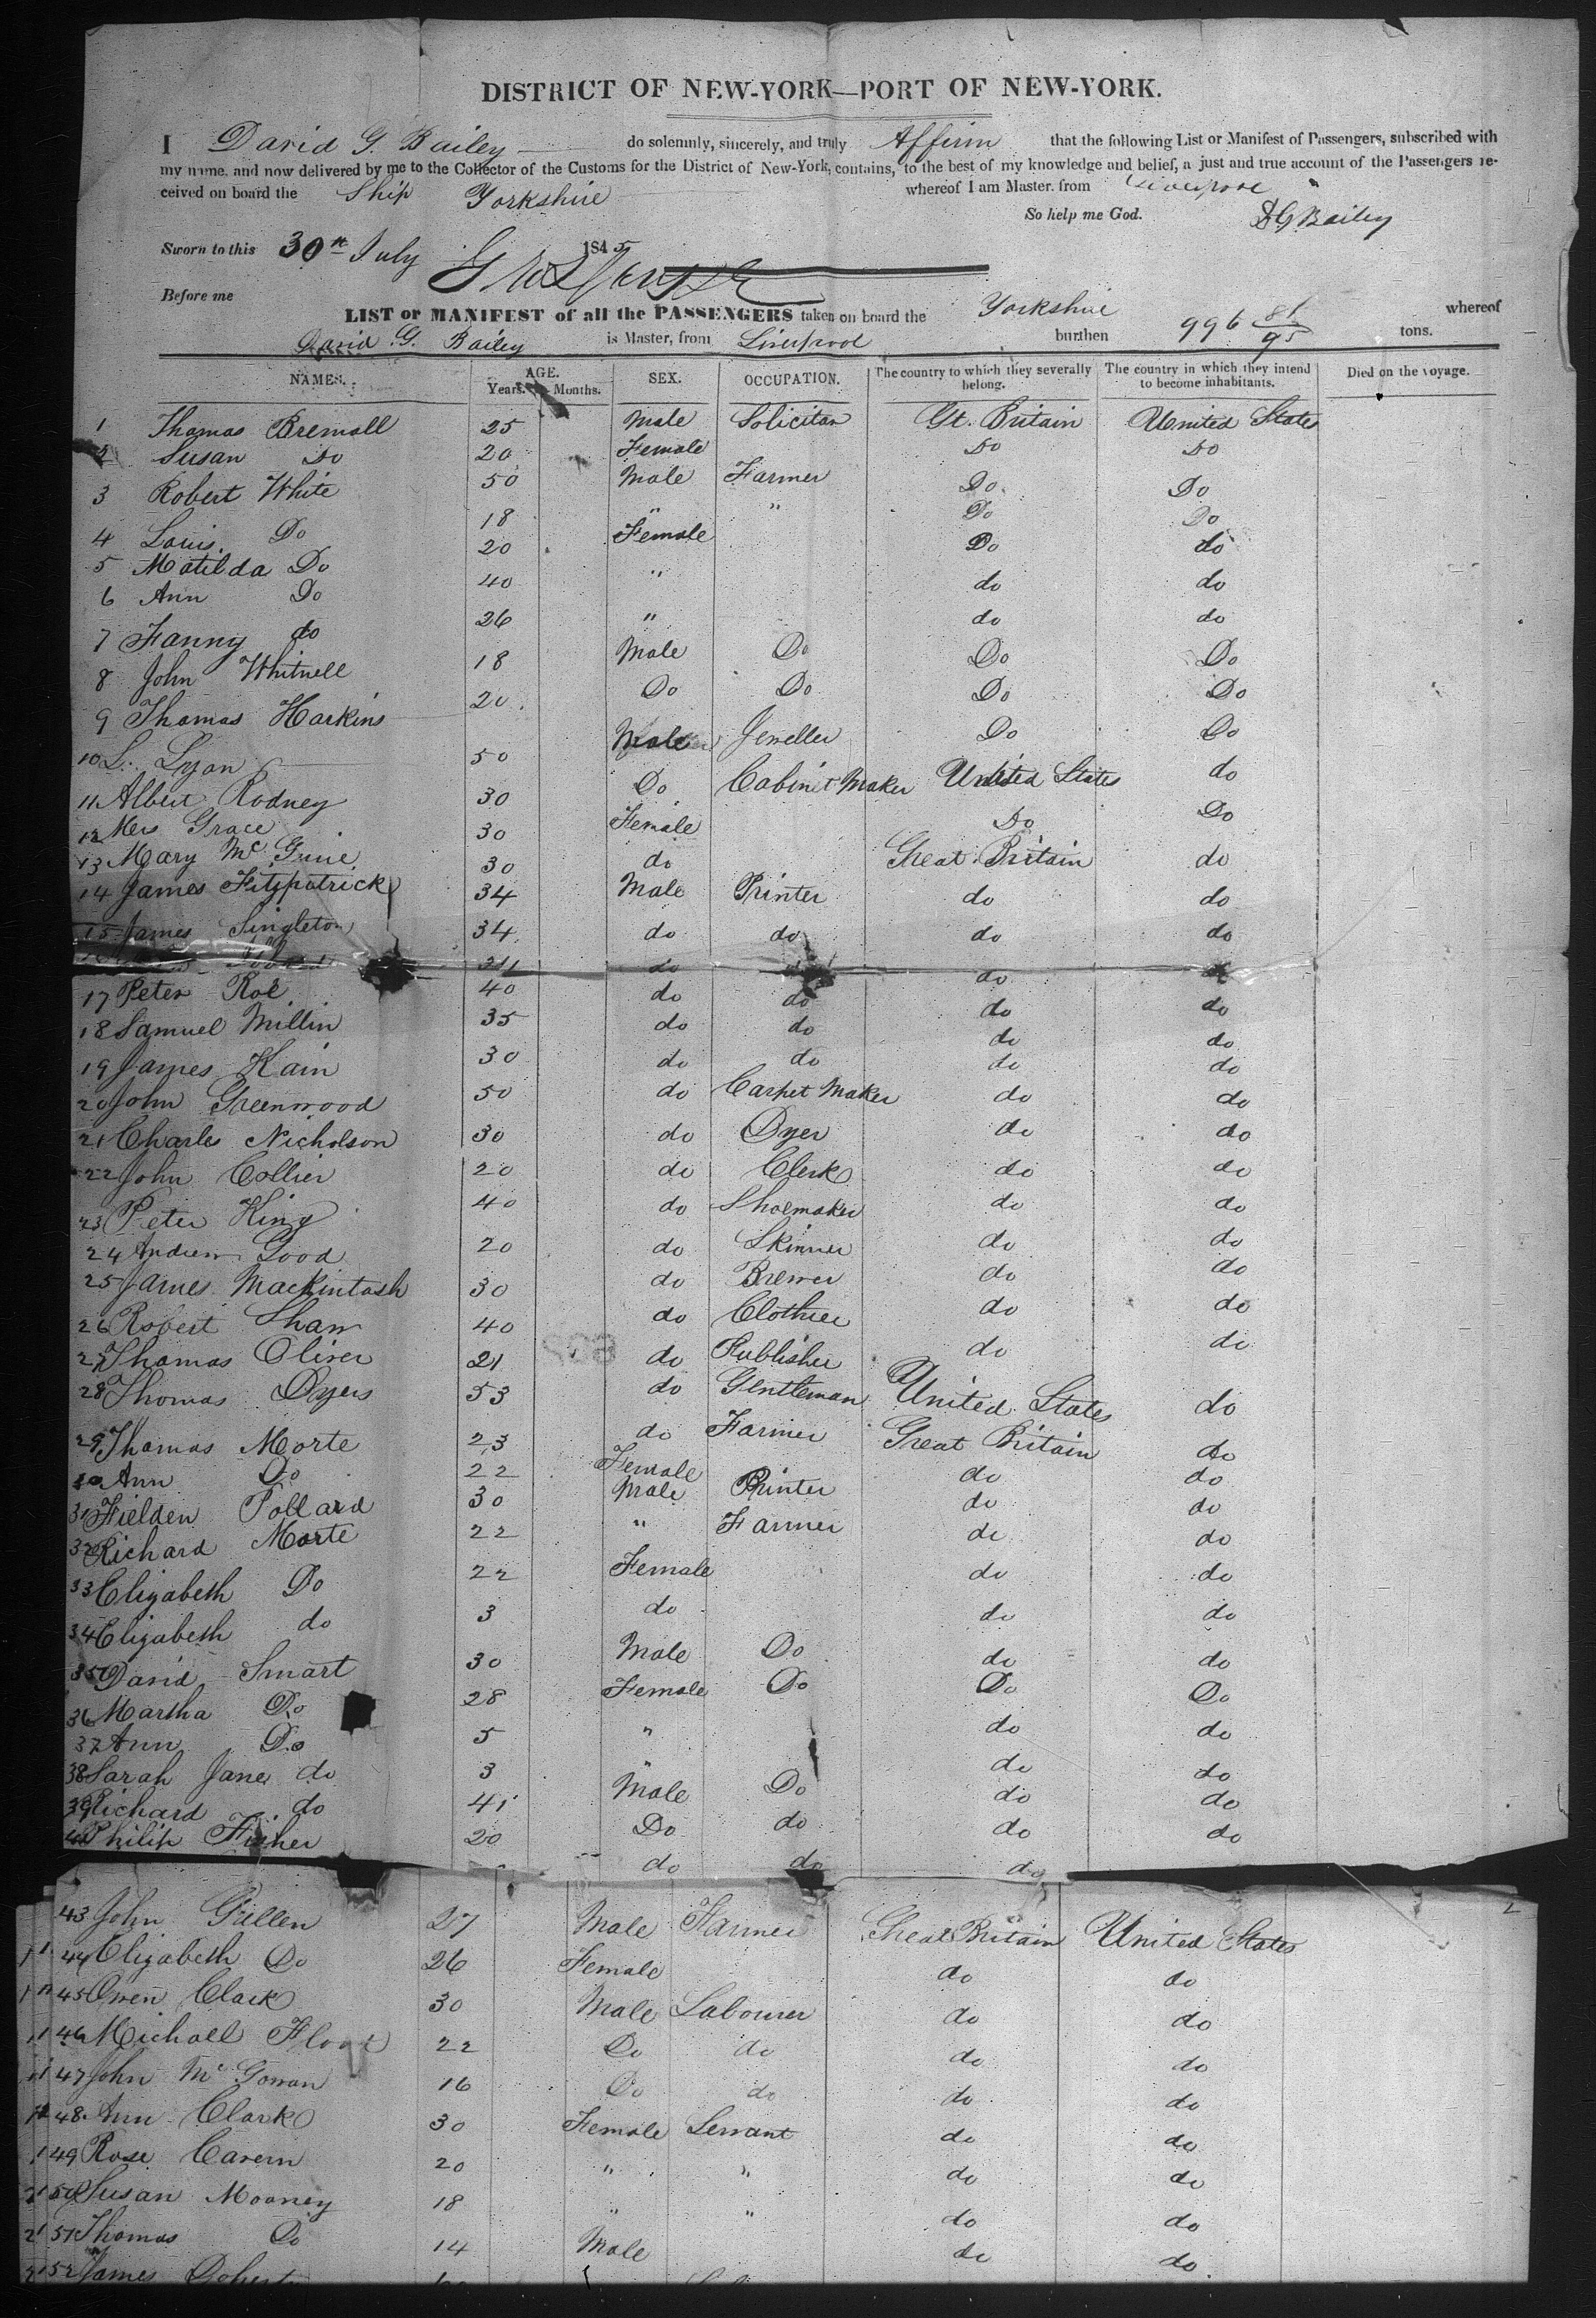 DISTRICT OF NEW-YORK—PORT OF NEW-YORK.
I David G. Bailey do solemnly, sincerely, and truly Affirm that the following List or Manifest of Passengers, subscribed with
my name, and now delivered by me to the Collector of the Customs for the District of New-York, contains, to the best of my knowledge and belief, a just and true account of the Passengers re-
ceived on board the Ship Yorkshire whereof I am Master, from Liverpool
So help me God. D G Bailey
Sworn to this 30th July 1845
Before me
LIST or MANIFEST of all the PASSENGERS taken on board the Yorkshire whereof
David G. Bailey is Master, from Liverpool burthen 996 86/95 tons.
NAMES. AGE. Years. Months. SEX. OCCUPATION. The country to which they severally belong. The country in which they intend to become inhabitants. Died on the voyage.
1 Thomas Bremall 25 Male Solicitor Gt. Britain United States
2 Susan Do 20 Female Do Do
3 Robert White 50 Male Farmer Do Do
4 Louis Do 18 " " Do Do
5 Matilda Do 20 Female Do do
6 Ann Do 40 " do do
7 Fanny do 26 " do do
8 John Whitnell 18 Male Do Do Do
9 Thomas Harkins 20 Do Do Do Do
10 L. Lyon 50 Male Jeweller Do Do
11 Albert Rodney 30 Do Cabinet Maker United States do
12 Mrs Grace 30 Female Do Do
13 Mary Mc Guire 30 do Great Britain do
14 James Fitzpatrick 34 Male Printer do do
15 James Singleton 34 do do do do
do do
17 Peter Roe 40 do do do do
18 Samuel Millin 35 do do do do
19 James Kain 30 do do do do
20 John Greenwood 50 do Carpet Maker do do
21 Charles Nicholson 30 do Dyer do do
22 John Collier 20 do Clerk do do
23 Peter King 40 do Shoemaker do do
24 Andrew Good 20 do Skinner do do
25 James Mackintosh 30 do Brewer do do
26 Robert Shaw 40 do Clothier do do
27 Thomas Oliver 21 do Publisher do do
28 Thomas Dyers 53 do Gentleman United States do
29 Thomas Morte 23 do Farmer Great Britain do
30 Ann Do 22 Female do do
31 Fielden Pollard 30 Male Printer do do
32 Richard Morte 22 " Farmer do do
33 Elizabeth Do 22 Female do do
34 Elizabeth do 3 do do do
35 David Smart 30 Male Do do do
36 Martha Do 28 Female Do Do Do
37 Ann Do 5 " do do
38 Sarah Jane do 3 " do do
39 Richard do 41 Male Do do do
40 Philip Fisher 20 Do do do do
do do do
43 John Gullen 27 Male Farmer Great Britain United States
44 Elizabeth Do 26 Female do do
45 Owen Clark 30 Male Labourer do do
46 Michael Flood 22 Do do do do
47 John Mc Gowan 16 Do do do do
48 Ann Clark 30 Female Servant do do
49 Rose Cavern 20 " " do do
50 Susan Mooney 18 " " do do
51 Thomas Do 14 Male do do
52 James